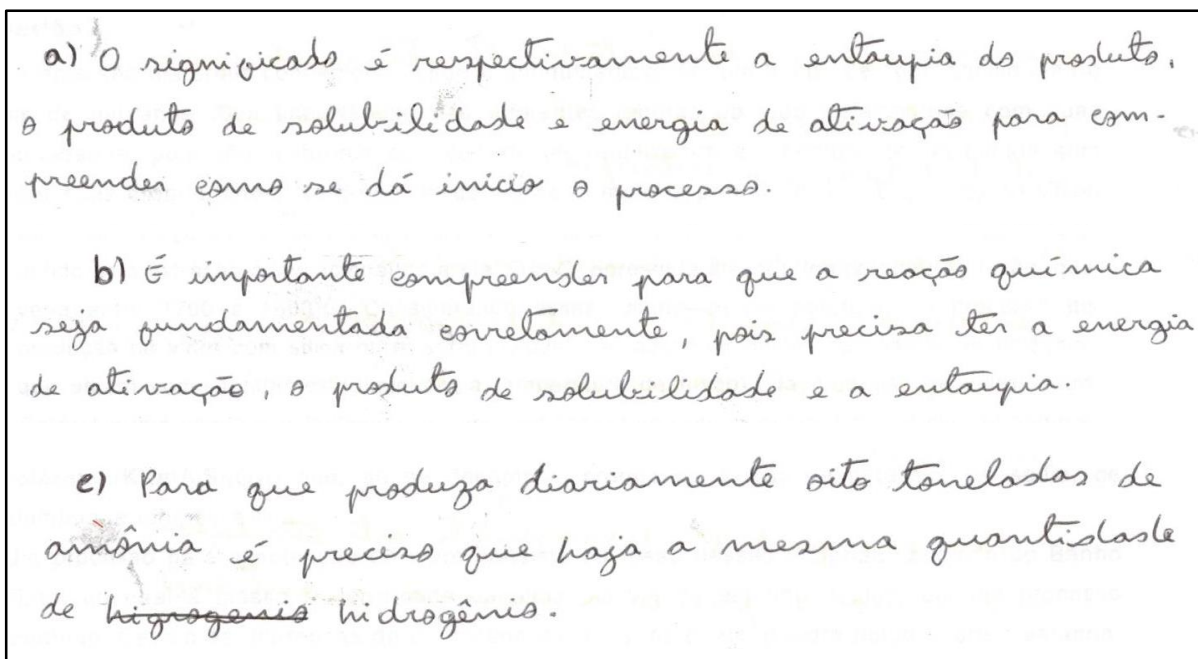 a) O significado é respectivamente a entaupia do produto,
o produto de solubilidade e energia de ativação para com-
preender como se dá início o processo.
b) É importante compreender para que a reação química
seja fundamentada corretamente, pois precisa ter a energia
de ativação, o produto de solubilidade e a entaupia.
c) Para que produza diariamente oito toneladas de
amônia é preciso que haja a mesma quantidade
de higrogenio hidrogênio.